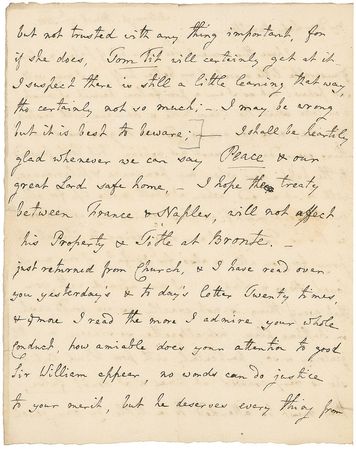 but not trusted with any thing important, for
if she does, Tom Tit will certainly get at it
I suspect there is still a little leaning that way,
tho certainly not so much; – I may be wrong
but it is best to beware; – I shall be heartily
glad whenever we can say Peace & our
great Lord safe home, – I hope the treaty
between France & Naples, will not affect
his Property & Title at Bronte. –
just returned from Church, & I have read over
you yesterday's & to day's letter Twenty times,
& more I read the more I admire your whole
Conduct, how amiable does your attention to good
Sir William appear, no words can do justice
to your merit, but he deserves every thing from